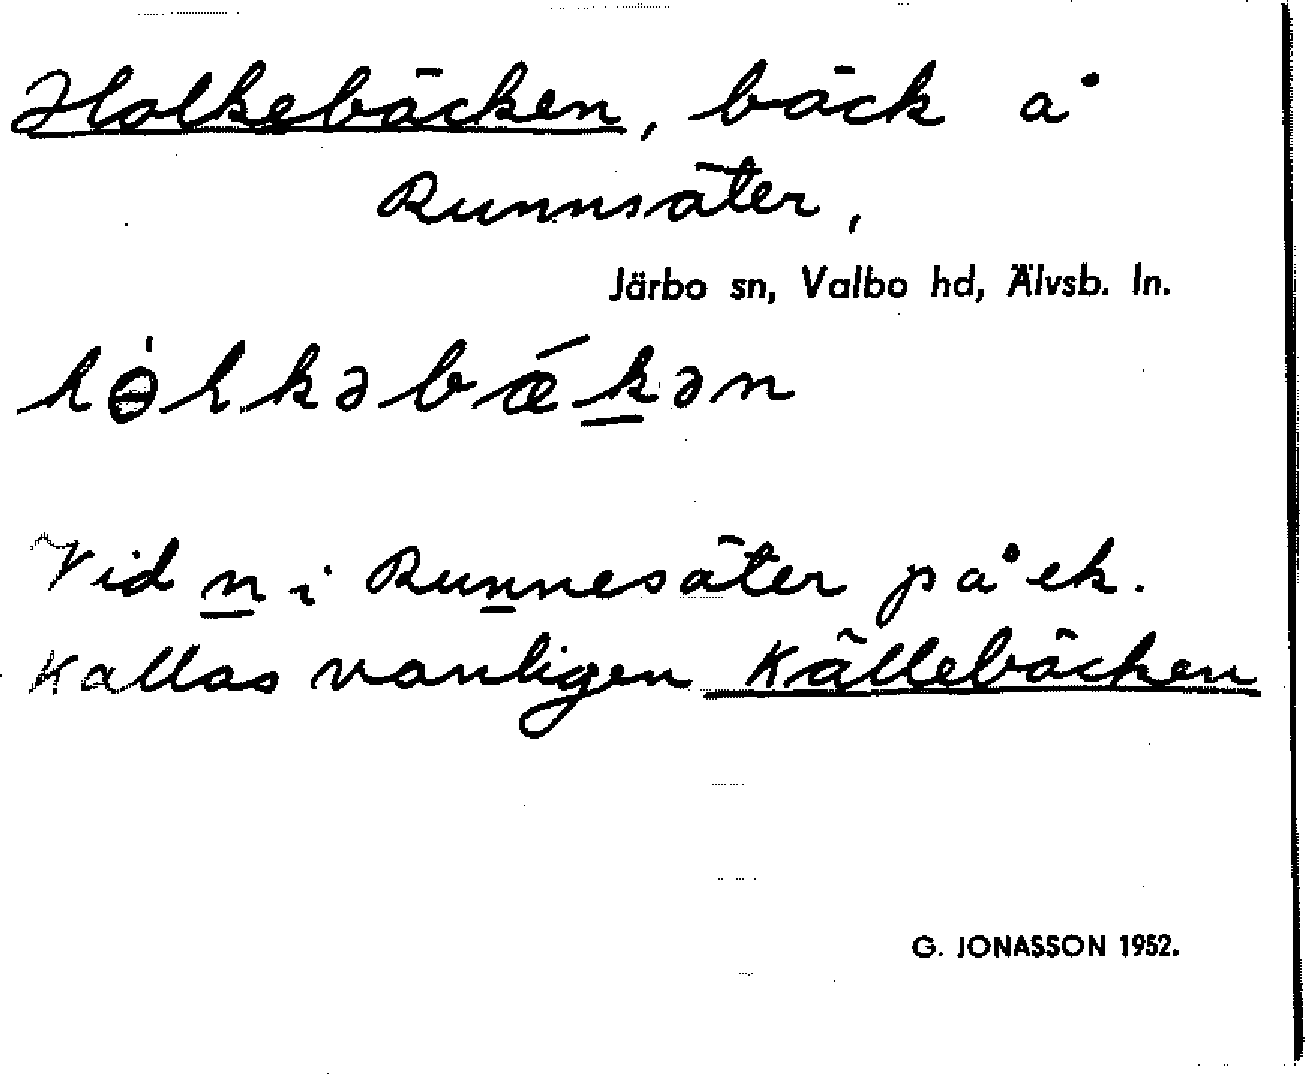 Holkebäcken, bäck å
Runnsäter,
Järbo sn, Valbo hd, Älvsb. ln.
hɵ̇lkəbǽk̲ən
Vid n i Runnesäter på ek.
Kallas vanligen Källebäcken
G. JONASSON 1952.